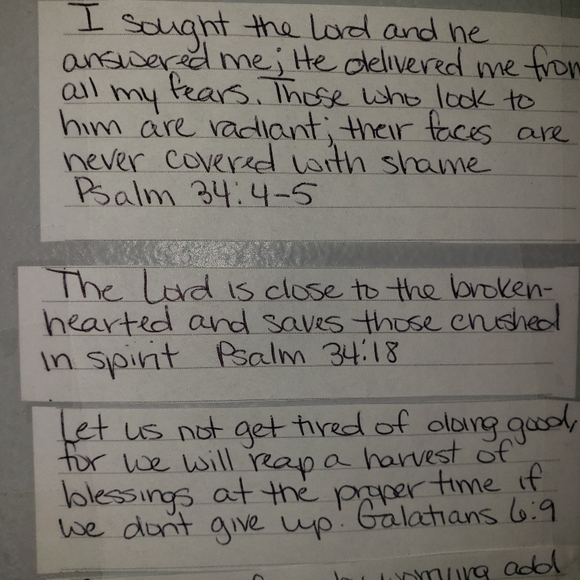 I sought the Lord and he
answered me; He delivered me from
all my fears. Those who look to
him are radiant; their faces are
never covered with shame
Psalm 34:4-5
The Lord is close to the broken-
hearted and saves those crushed
in spirit Psalm 34:18
Let us not get tired of doing good,
for we will reap a harvest of
blessings at the proper time if
we dont give up. Galatians 6:9
add